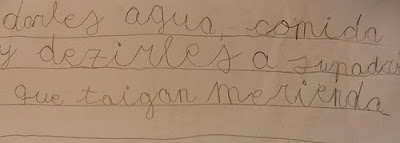 darles agua, comida
y dezirles a supadre
que taigan merienda